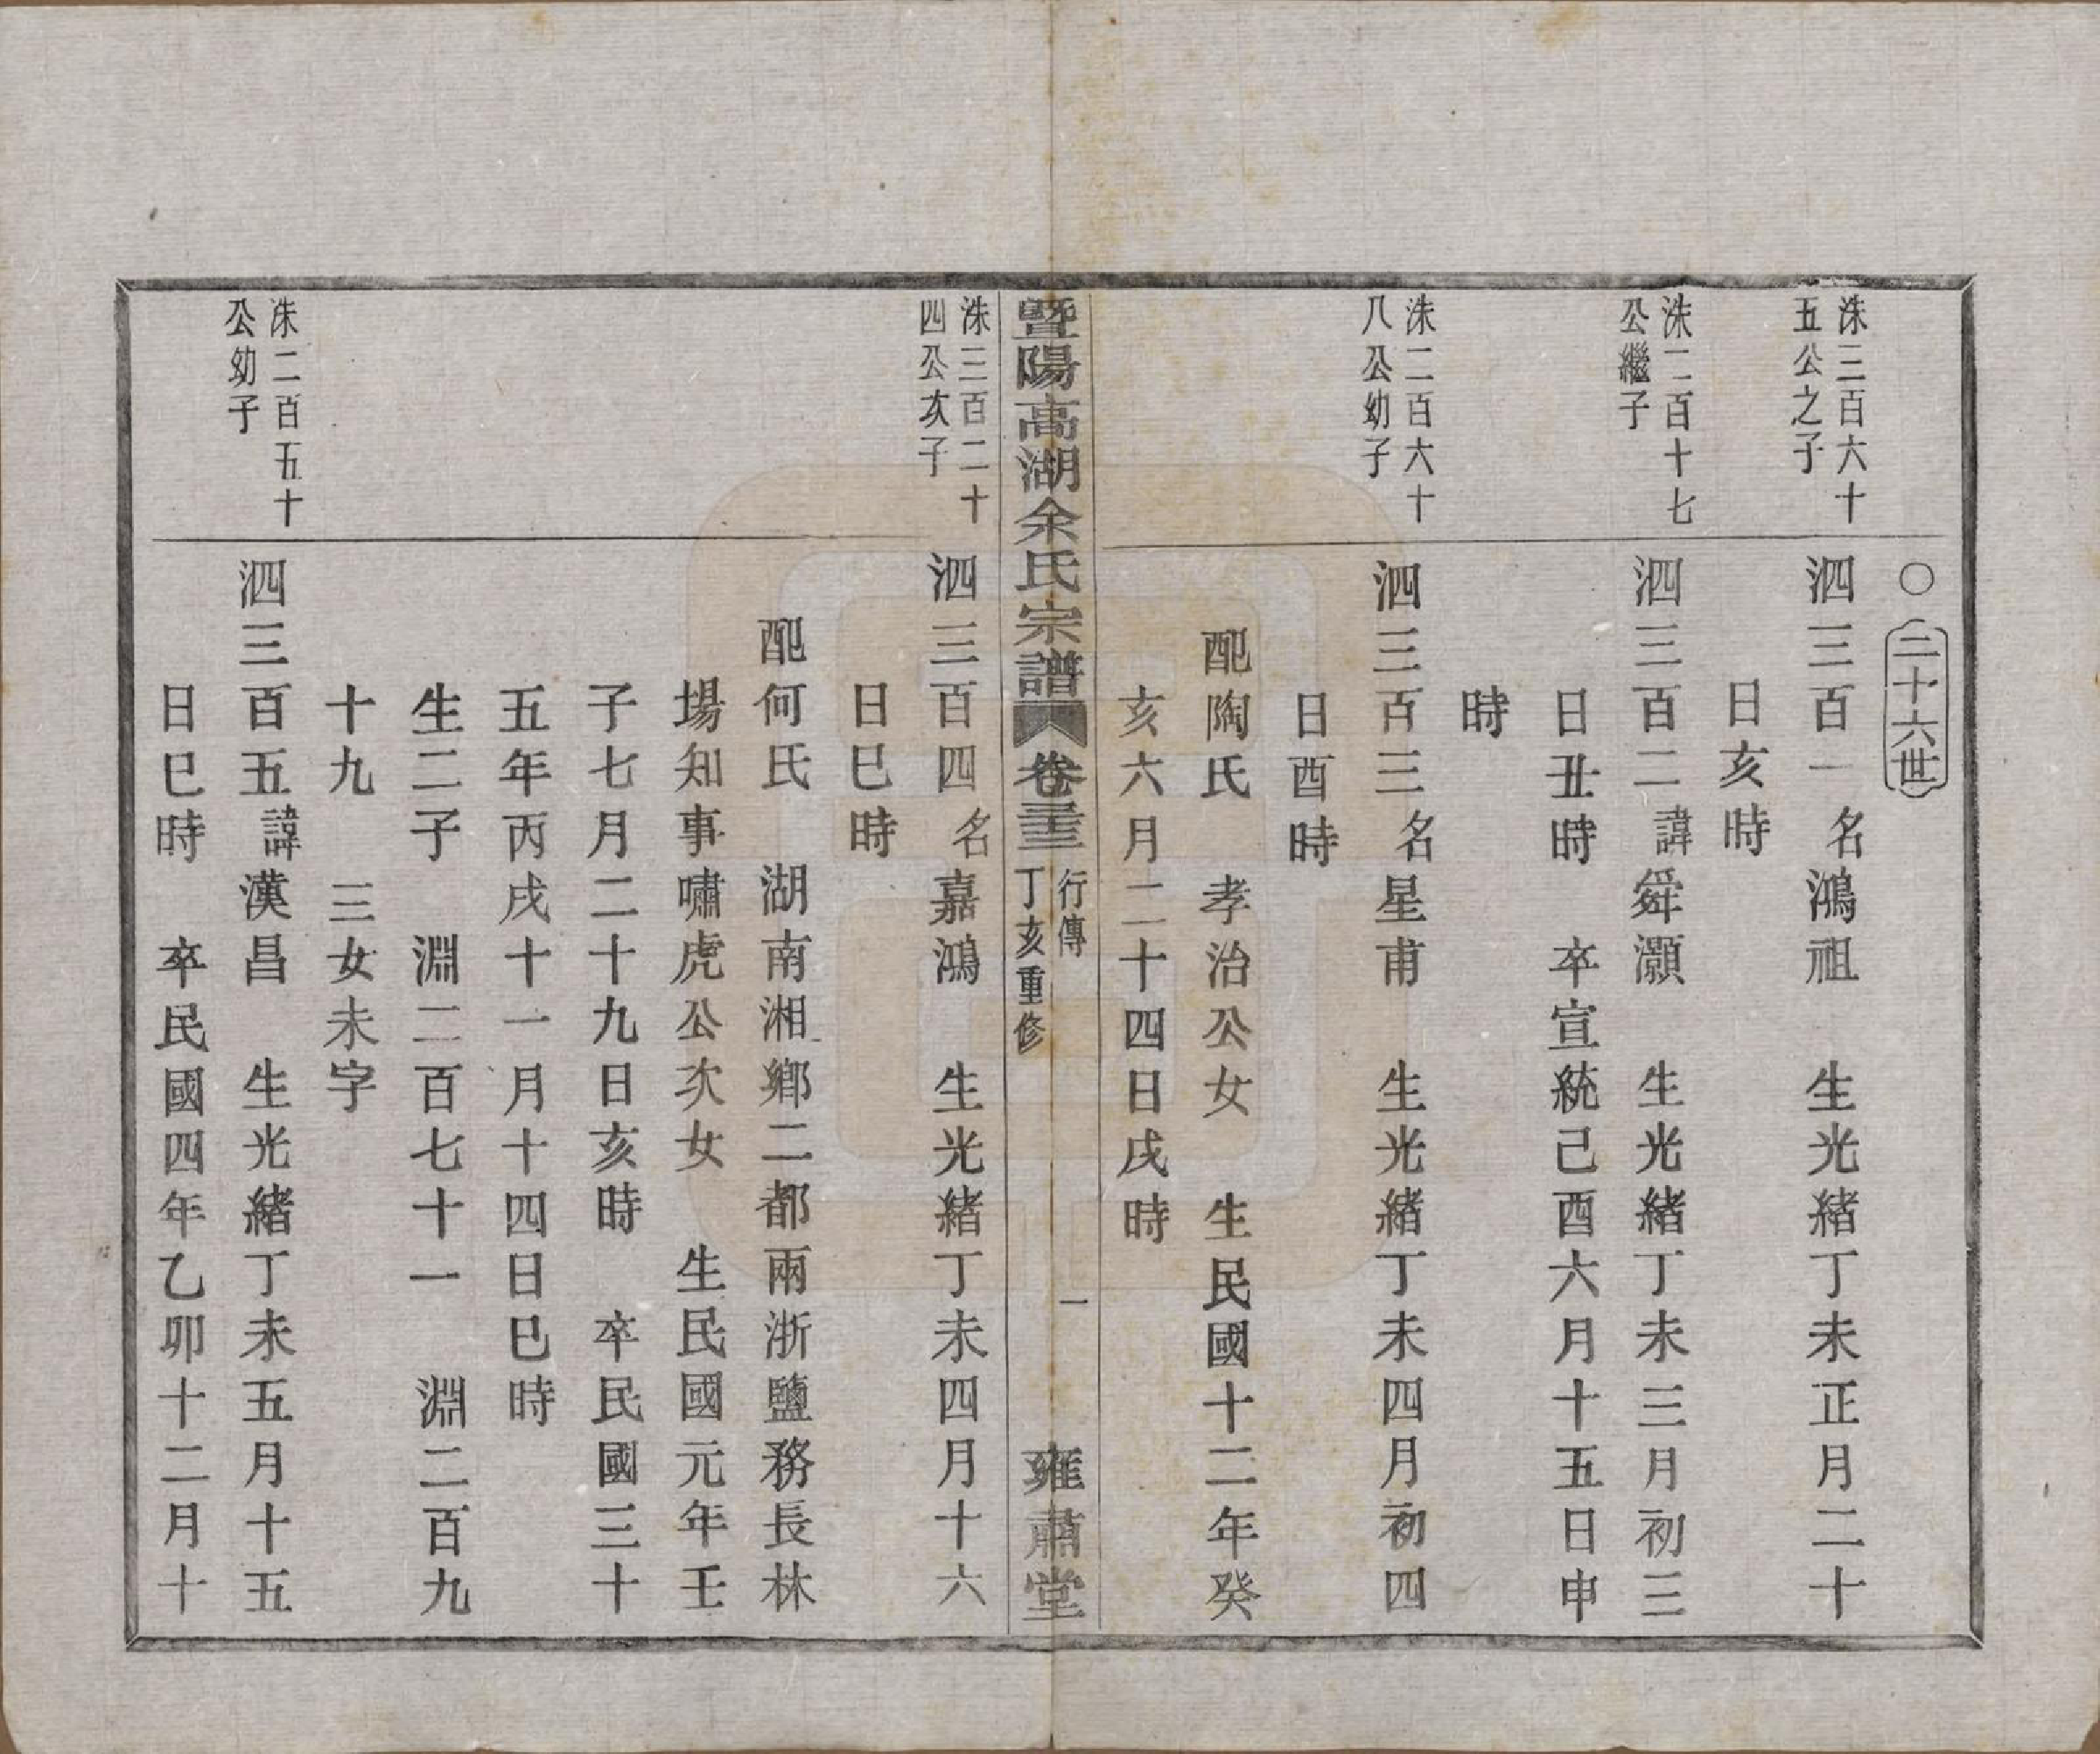 ○二十六世
洙三百六十
五公之子
泗三百一名鴻祖 生光緒丁未正月二十
日亥時
洙二百十七
公繼子
泗三百二諱舜灝 生光緒丁未三月初三
日丑時 卒宣統己酉六月十五日申
時
洙二百六十
八公幼子
泗三百三名星甫 生光緒丁未四月初四
日酉時
配陶氏 孝治公女 生民國十二年癸
亥六月二十四日戌時
暨陽高湖余氏宗譜 卷三十三 行傳 丁亥重修 一 雍肅堂
洙三百二十
四公次子
泗三百四名嘉鴻 生光緒丁未四月十六
日巳時
配何氏 湖南湘鄉二都兩浙鹽務長林
場知事嘯虎公次女 生民國元年壬
子七月二十九日亥時 卒民國三十
五年丙戌十一月十四日巳時
生二子 淵二百七十一 淵二百九
十九 三女未字
洙二百五十
公幼子
泗三百五諱漢昌 生光緒丁未五月十五
日巳時 卒民國四年乙卯十二月十